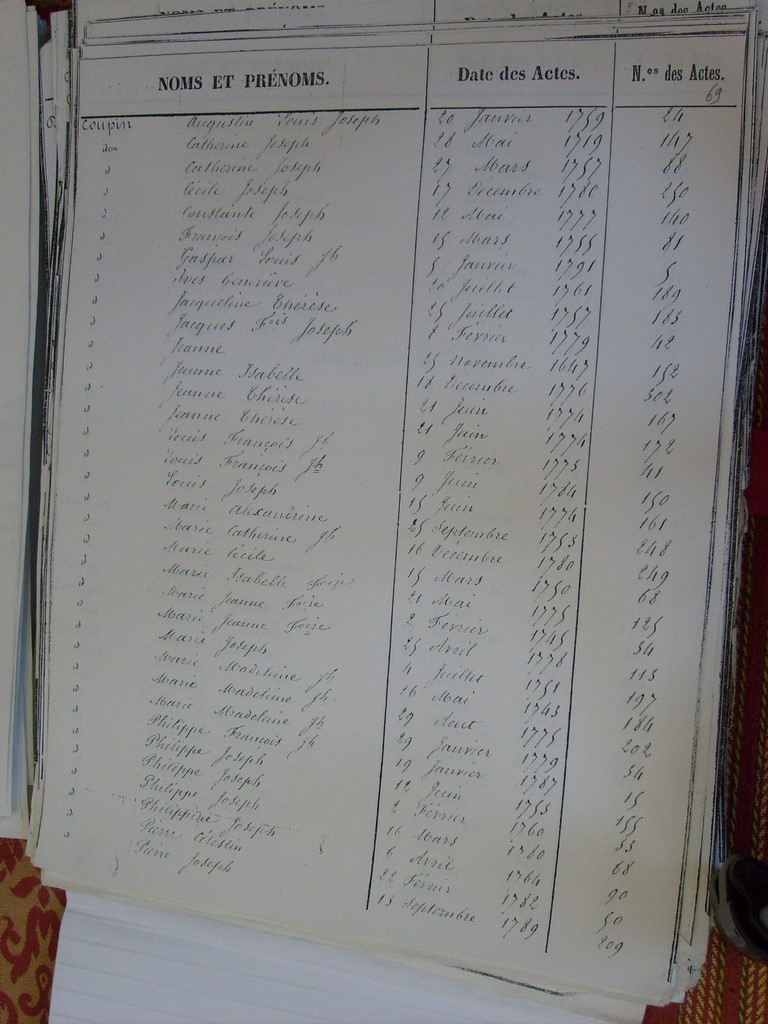 NOMS ET PRÉNOMS. Date des Actes. N.os des Actes.
69
Coupin Augustin Louis Joseph 20 Janvier 1759 24
idem Catherine Joseph 28 Mai 1719 147
" Catherine Joseph 27 Mars 1757 88
" Cécile Joseph 17 Decembre 1780 250
" Constante Joseph 12 Mai 1777 140
" François Joseph 15 Mars 1755 81
" Gaspar Louis Jh 5 Janvier 1791 5
" Yves Genevieve 30 Juillet 1761 189
" Jacqueline Thérèse 25 Juillet 1757 183
" Jacques Fois Joseph 8 Février 1779 42
" Jeanne 25 novembre 1647 152
" Jeanne Isabelle 18 Decembre 1776 302
" Jeanne Thérèse 21 Juin 1774 167
" Jeanne Thérèse 21 Juin 1774 172
" Louis François Jh 9 Février 1773 41
" Louis François Jh 9 Juin 1784 150
" Louis Joseph 15 Juin 1774 161
" Marie Alexandrine 25 Septembre 1753 248
" Marie Catherine Jh 16 Décembre 1780 249
" Marie Cécile 15 Mars 1750 68
" Marie Isabelle Foise 21 Mai 1775 125
" Marie Jeanne Foise 2 Février 1745 34
" Marie Jeanne Foise 25 Avril 1778 113
" Marie Joseph 4 Juillet 1751 197
" Marie Madeleine Jh 26 Mai 1743 184
" Marie Madeleine Jh 29 Aout 1775 202
" Marie Madeleine Jh 29 Janvier 1779 34
" Philippe François Jh 19 Janvier 1787 15
" Philippe Joseph 12 Juin 1753 155
" Philippe Joseph 2 Février 1760 33
" Philippe Joseph 16 Mars 1780 68
" Philippine Joseph 6 Avril 1764 90
" Pierre Célestin 22 Février 1782 50
" Pierre Joseph 18 Septembre 1789 209